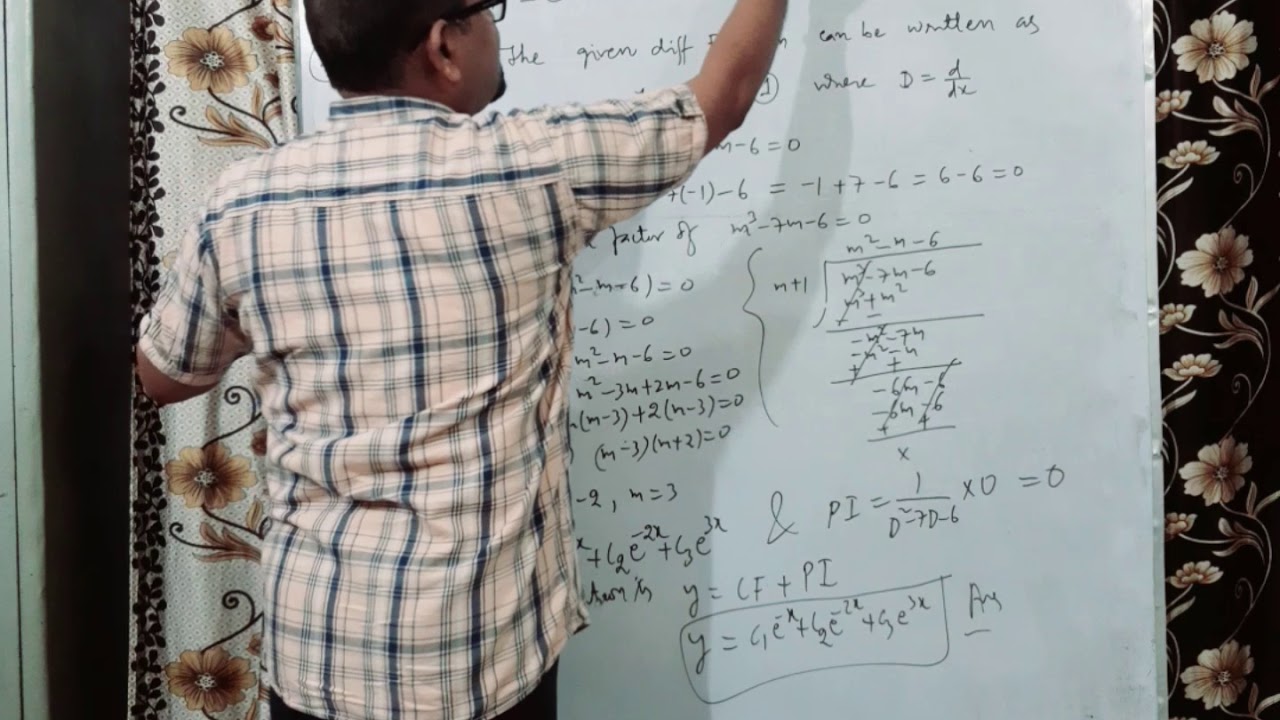 the given diff can be written as
① where D = d/dx
m-6=0
+(-1)-6 = -1+7-6 = 6-6=0
factor of m³-7m-6=0
m²-m-6
m+1
m³-7m-6
m³+m²
-m²-7m
-m²-m
-6m-6
-6m-6
x
²-m-6)=0
-6)=0
m²-m-6=0
m²-3m+2m-6=0
(m-3)+2(m-3)=0
(m-3)(m+2)=0
-2, m=3
& PI = 1/(D²-7D-6) ×0 = 0
x+C₂e⁻²ˣ+C₃e³ˣ
y = CF + PI
y = C₁e⁻ˣ+C₂e⁻²ˣ+C₃e³ˣ Ans